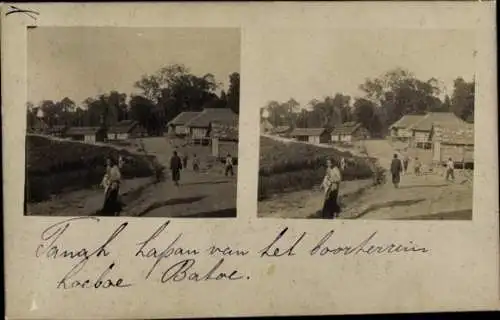 Tanah lapan van het boorterrein
Loeboe Batoe.